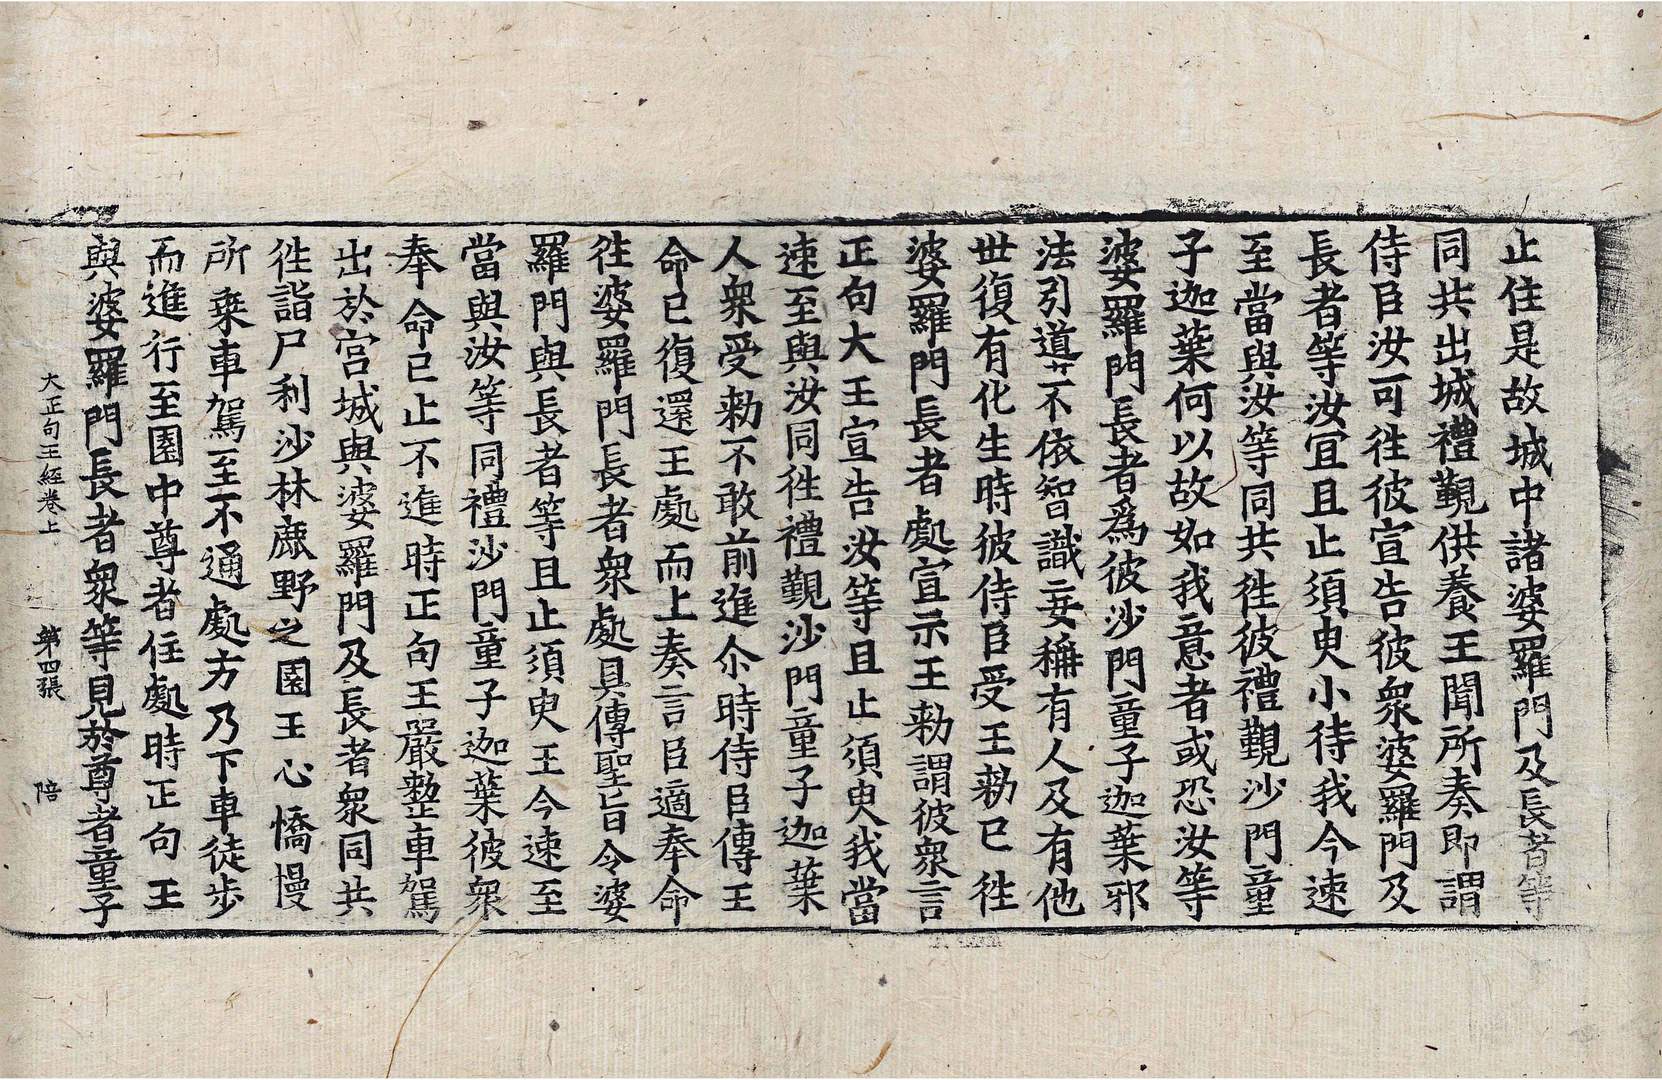 止住是故城中諸婆羅門及長者等
同共出城禮覲供養王聞所奏即謂
侍臣汝可徃彼宣告彼衆婆羅門及
長者等汝宜且止須臾小待我今速
至當與汝等同共徃彼禮覲沙門童
子迦葉何以故如我意者或恐汝等
婆羅門長者爲彼沙門童子迦葉邪
法引道䒑不依智識妄稱有人及有他
世復有化生時彼侍臣受王勑已徃
婆羅門長者處宣示王勑謂彼衆言
正句大王宣告汝等且止須臾我當
速至與汝同徃禮覲沙門童子迦葉
人衆受勑不敢前進尒時侍臣傳王
命已復還王處而上奏言臣適奉命
徃婆羅門長者衆處具傳聖旨令婆
羅門與長者等且止須臾王今速至
當與汝等同禮沙門童子迦葉彼衆
奉命已止不進時正句王嚴整車駕
出於宫城與婆羅門及長者衆同共
徃詣尸利沙林鹿野之園王心憍慢
所乗車駕至不通處方乃下車徒步
而進行至園中尊者住處時正句王
與婆羅門長者衆等見於尊者童子
大正句王經卷上 第四張 陪